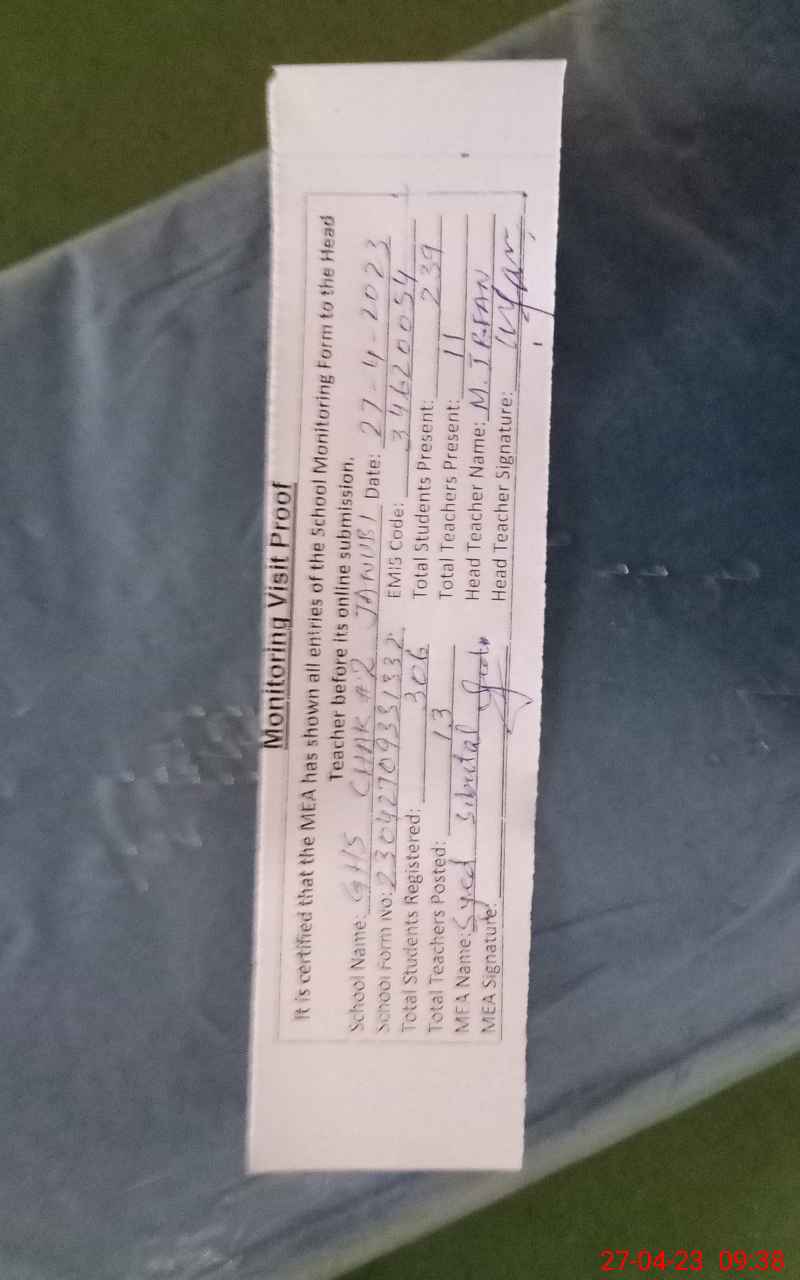 Monitoring Visit Proof
It is certified that the MEA has shown all entries of the School Monitoring Form to the Head
Teacher before its online submission.
School Name: GHS CHAK #2 JANUBI Date: 27-4-2023
School Form No: 230427093351332 EMIS Code: 34620054
Total Students Registered: 306 Total Students Present: 239
Total Teachers Posted: 13 Total Teachers Present: 11
MEA Name: Syed Head Teacher Name: M. IRFAN
MEA Signature: Head Teacher Signature: Irfan
27-04-23 09:38